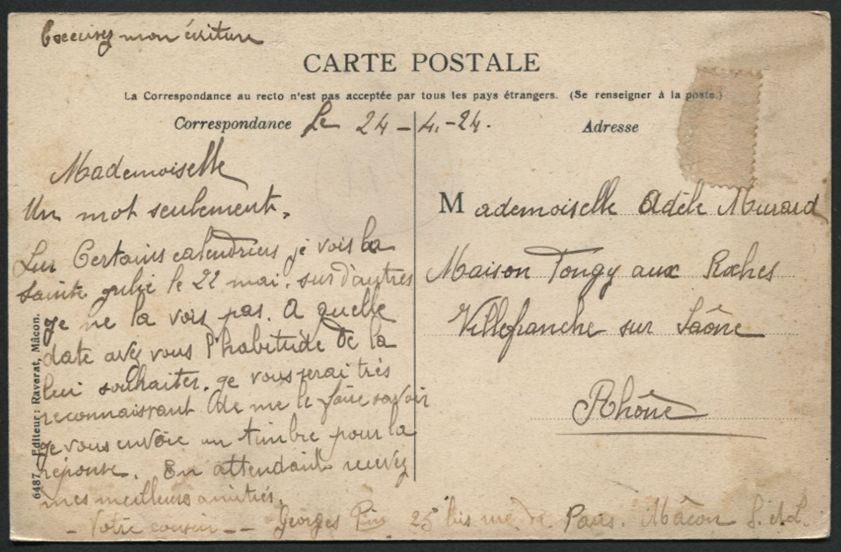 Excusez mon écriture
CARTE POSTALE
La Correspondance au recto n'est pas acceptée par tous les pays étrangers. (Se renseigner à la poste.)
Correspondance Le 24 - 4. - 24.
Mademoiselle
Un mot seulement.
Sur Certains calendriers je vois la
Sainte Julie le 22 mai. sur d'autres
je ne la vois pas. A quelle
date avez vous l'habitude de la
lui souhaiter. je vous serai très
reconnaissant de me le faire savoir
je vous envoie un timbre pour la
réponse. En attendant recevez
mes meilleurs amitiés.
- Votre cousin - - Georges 25 bis rue de Paris. Mâcon S. et L.
Adresse
Mademoiselle Adèle Muraud
Maison Tongy aux Roches
Villefranche sur Saône
Rhône
6487 Editeur: Raverat, Mâcon.